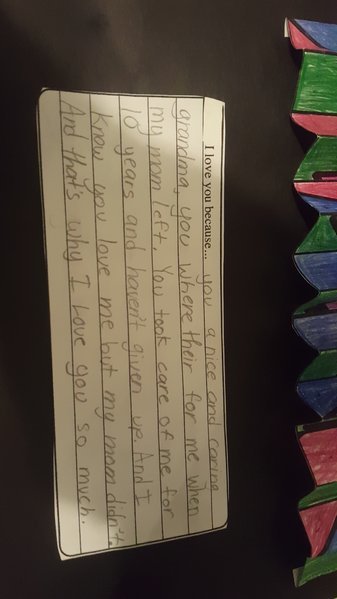 I love you because... you a nice and caring
grandma, you where their for me when
my mom left. You took care of me for
10 years and haven't given up. And I
know you love me but my mom didn't.
And that's why I Love you so much.